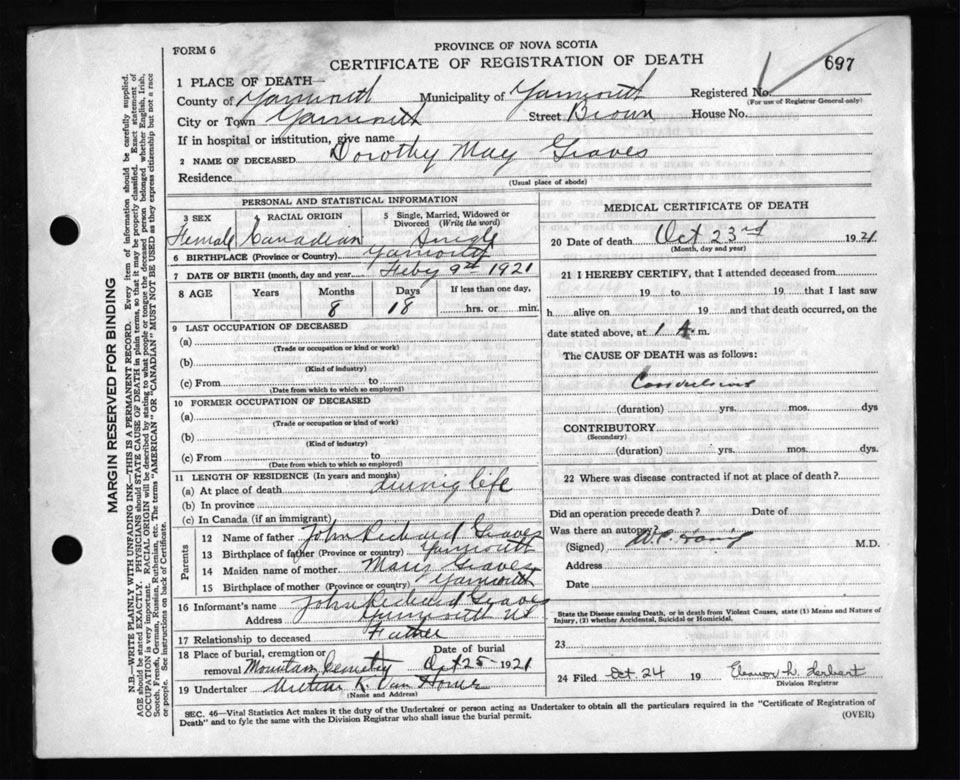 FORM 6
PROVINCE OF NOVA SCOTIA
CERTIFICATE OF REGISTRATION OF DEATH
697
1 PLACE OF DEATH—
County of Yarmouth Municipality of Yarmouth Registered No.
(For use of Registrar General only)
City or Town Yarmouth Street Brown House No.
If in hospital or institution, give name
2 NAME OF DECEASED Dorothy May Graves
Residence
(Usual place of abode)
PERSONAL AND STATISTICAL INFORMATION
3 SEX 4 RACIAL ORIGIN 5 Single, Married, Widowed or Divorced (Write the word)
Female Canadian Single
6 BIRTHPLACE (Province or Country) Yarmouth
7 DATE OF BIRTH (month, day and year) Feby 9th 1921
8 AGE Years Months Days If less than one day,
8 18 hrs. or min.
9 LAST OCCUPATION OF DECEASED
(a)
(Trade or occupation or kind or work)
(b)
(Kind of industry)
(c) From to
(Date from which to which so employed)
10 FORMER OCCUPATION OF DECEASED
(a)
(Trade or occupation or kind of work)
(b)
(Kind of industry)
(c) From to
(Date from which to which so employed)
11 LENGTH OF RESIDENCE (In years and months)
(a) At place of death during life
(b) In province
(c) In Canada (if an immigrant)
Parents
12 Name of father John Richard Graves
13 Birthplace of father (Province or country) Yarmouth
14 Maiden name of mother Graves
15 Birthplace of mother (Province or country) Yarmouth
16 Informant's name John Richard Graves
Address Yarmouth NS
17 Relationship to deceased Father
18 Place of burial, cremation or Date of burial
removal Mountain Cemetery Oct 25 - 1921
19 Undertaker K. Van Horne
(Name and Address)
MEDICAL CERTIFICATE OF DEATH
20 Date of death Oct 23rd 1921
(Month, day and year)
21 I HEREBY CERTIFY, that I attended deceased from
19 to 19 that I last saw
h alive on 19 and that death occurred, on the
date stated above, at 1 A.m.
The CAUSE OF DEATH was as follows:
Convulsions
(duration) yrs. mos. dys
CONTRIBUTORY
(Secondary)
(duration) yrs. mos. dys.
22 Where was disease contracted if not at place of death?
Did an operation precede death? Date of
Was there an autopsy?
(Signed) M.D.
Address
Date
State the Disease causing Death, or in death from Violent Causes, state (1) Means and Nature of Injury, (2) whether Accidental, Suicidal or Homicidal.
23
24 Filed Oct 24 19 Eleanor L. Herbert
Division Registrar
SEC. 46—Vital Statistics Act makes it the duty of the Undertaker or person acting as Undertaker to obtain all the particulars required in the "Certificate of Registration of
Death" and to fyle the same with the Division Registrar who shall issue the burial permit.
(OVER)
MARGIN RESERVED FOR BINDING
N.B.—WRITE PLAINLY WITH UNFADING INK—THIS IS A PERMANENT RECORD. Every item of information should be carefully supplied.
AGE should be stated EXACTLY. PHYSICIANS should STATE CAUSE OF DEATH in plain terms, so that it may be properly classified. Exact statement of
OCCUPATION is very important. RACIAL ORIGIN will be described by stating to what people or tongue the deceased person belonged whether English, Irish,
Scotch, French, German, Russian, Ruthenian, etc. The terms "AMERICAN" OR "CANADIAN" MUST NOT BE USED as they express citizenship but not a race
or people. See instructions on back of Certificate.